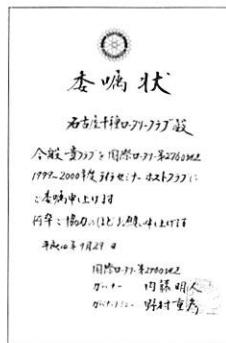 委嘱状
名古屋千種ロータリークラブ殿
今般貴クラブを国際ロータリー第2760地区
1999~2000年度ライラセミナーホストクラブに
ご委嘱申し上げます
何卒ご協力のほどお願い申し上げます
平成10年9月29日
国際ロータリー第2760地区
ガバナー 内藤明人
ガバナーノミニー 野村重彦